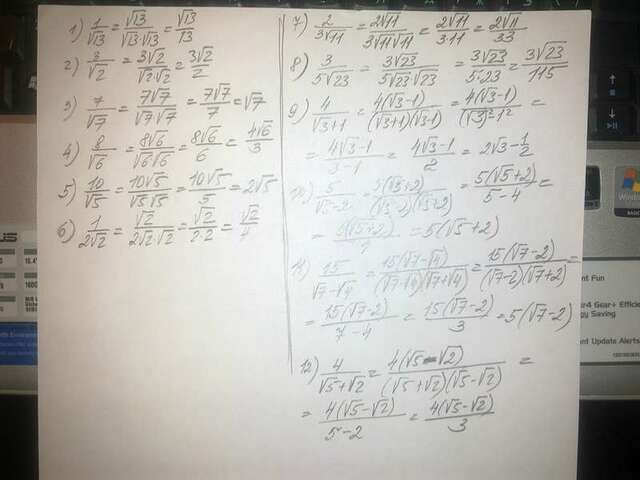 1) 1/√13 = √13/(√13·√13) = √13/13
2) 3/√2 = 3√2/(√2√2) = 3√2/2
3) 7/√7 = 7√7/(√7√7) = 7√7/7 = √7
4) 8/√6 = 8√6/(√6√6) = 8√6/6 = 4√6/3
5) 10/√5 = 10√5/(√5√5) = 10√5/5 = 2√5
6) 1/(2√2) = √2/(2√2·√2) = √2/(2·2) = √2/4
7) 2/(3√11) = 2√11/(3√11√11) = 2√11/(3·11) = 2√11/33
8) 3/(5√23) = 3√23/(5√23√23) = 3√23/(5·23) = 3√23/115
9) 4/(√3+1) = 4(√3-1)/((√3+1)(√3-1)) = 4(√3-1)/((√3)²-1²) =
= (4√3-1)/(3-1) = (4√3-1)/2 = 2√3-1/2
10) 5/(√5-2) = 5(√5+2)/((√5-2)(√5+2)) = 5(√5+2)/(5-4) =
= 5(√5+2)/1 = 5(√5+2)
11) 15/(√7-√4) = 15(√7-√4)/((√7-√4)(√7+√4)) = 15(√7-2)/((√7-2)(√7+2)) =
= 15(√7-2)/(7-4) = 15(√7-2)/3 = 5(√7-2)
12) 4/(√5+√2) = 4(√5-√2)/((√5+√2)(√5-√2)) =
= 4(√5-√2)/(5-2) = 4(√5-√2)/3
Windows
ent Fun
er4 Gear+ Efficie
gy Saving
dard Update Alerts